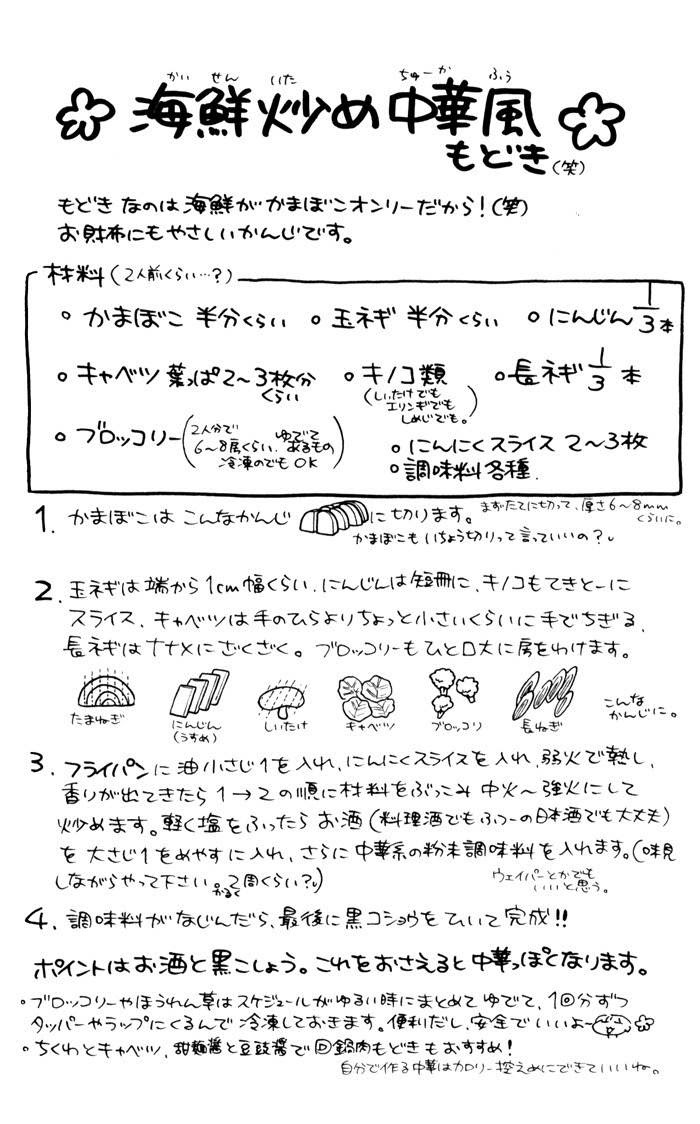 かい せん いた ちゅーか ふう
海鮮炒め中華風
もどき(笑)
もどきなのは海鮮がかまぼこオンリーだから!(笑)
お財布にもやさしいかんじです。
材料(2人前くらい…?)
○かまぼこ 半分くらい ○玉ネギ 半分くらい ○にんじん1/3本
○キャベツ 葉っぱ2〜3枚分くらい ○キノコ類 ○長ネギ1/3本
(しいたけでも
エリンギでも
しめじでも。)
○ブロッコリー(2人分で
6〜8房くらい。ゆでてあるもの
冷凍のでもOK)
○にんにくスライス 2〜3枚
○調味料各種.
1. かまぼこは こんなかんじ に切ります。まずたてに切って、厚さ6〜8mmくらいに。
かまぼこもいちょう切りって言っていいの?
2. 玉ネギは端から1cm幅くらい、にんじんは短冊に、キノコもてきとーに
スライス、キャベツは手のひらよりちょっと小さいくらいに手でちぎる、
長ネギはナナメにざくざく。ブロッコリーもひと口大に房をわけます。
たまねぎ にんじん(うすめ) しいたけ キャベツ ブロッコリ 長ねぎ こんなかんじに。
3. フライパンに油小さじ1を入れ、にんにくスライスを入れ、弱火で熱し、
香りが出てきたら1→2の順に材料をぶっこみ中火〜強火にして
炒めます。軽く塩をふったらお酒(料理酒でもふつーの日本酒でも大丈夫)
を大さじ1をめやすに入れ、さらに中華系の粉末調味料を入れます。(味見
しながらやって下さい。かるく2周くらい?)
ウェイパーとかでも
いいと思う。
4. 調味料がなじんだら、最後に黒コショウをひいて完成!!
ポイントはお酒と黒こしょう。これをおさえると中華っぽくなります。
○ブロッコリーやほうれん草はスケジュールがゆるい時にまとめてゆでて、1回分ずつ
タッパーやラップにくるんで冷凍しておきます。便利だし、安全でいいよー
○ちくわとキャベツ、甜麺醤と豆豉醤で回鍋肉もどきもおすすめ!
自分で作る中華はカロリー控えめにできていいね。